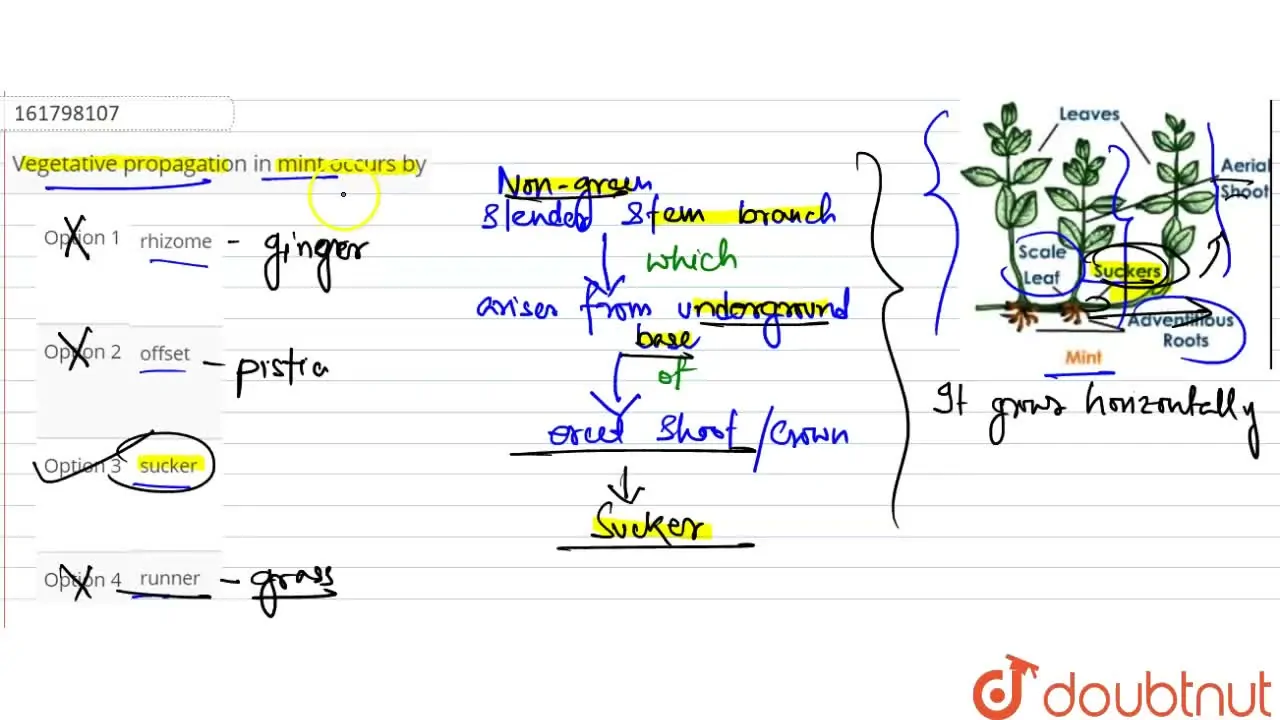 161798107
Vegetative propagation in mint occurs by
Option 1 rhizome - ginger
Option 2 offset - pistia
Option 3 sucker
Option 4 runner - grass
Non-green
slender stem branch
which
arises from underground
base
of
erect shoot / crown
Sucker
Leaves
Aerial
Shoot
Scale
Leaf
Suckers
Adventitious
Roots
Mint
It grows horizontally
doubtnut